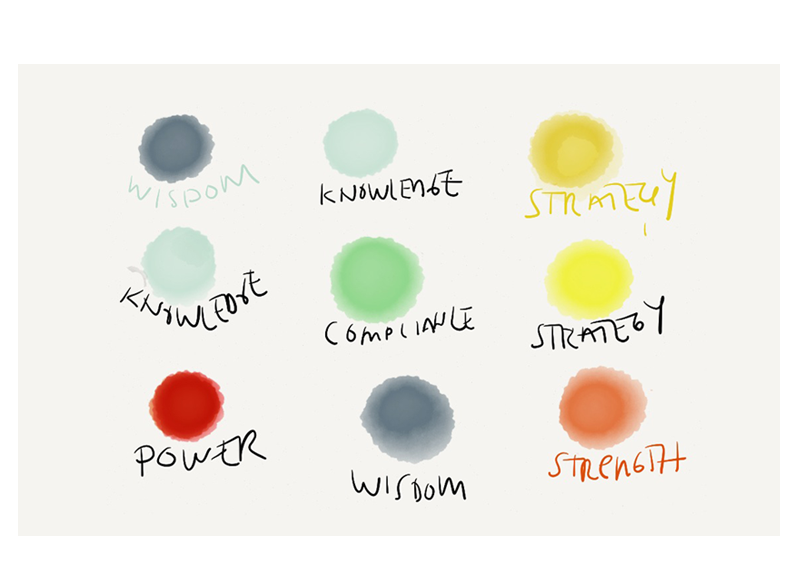 WISDOM
KNOWLEDGE
STRATEGY
KNOWLEDGE
COMPLIANCE
STRATEGY
POWER
WISDOM
STRENGTH